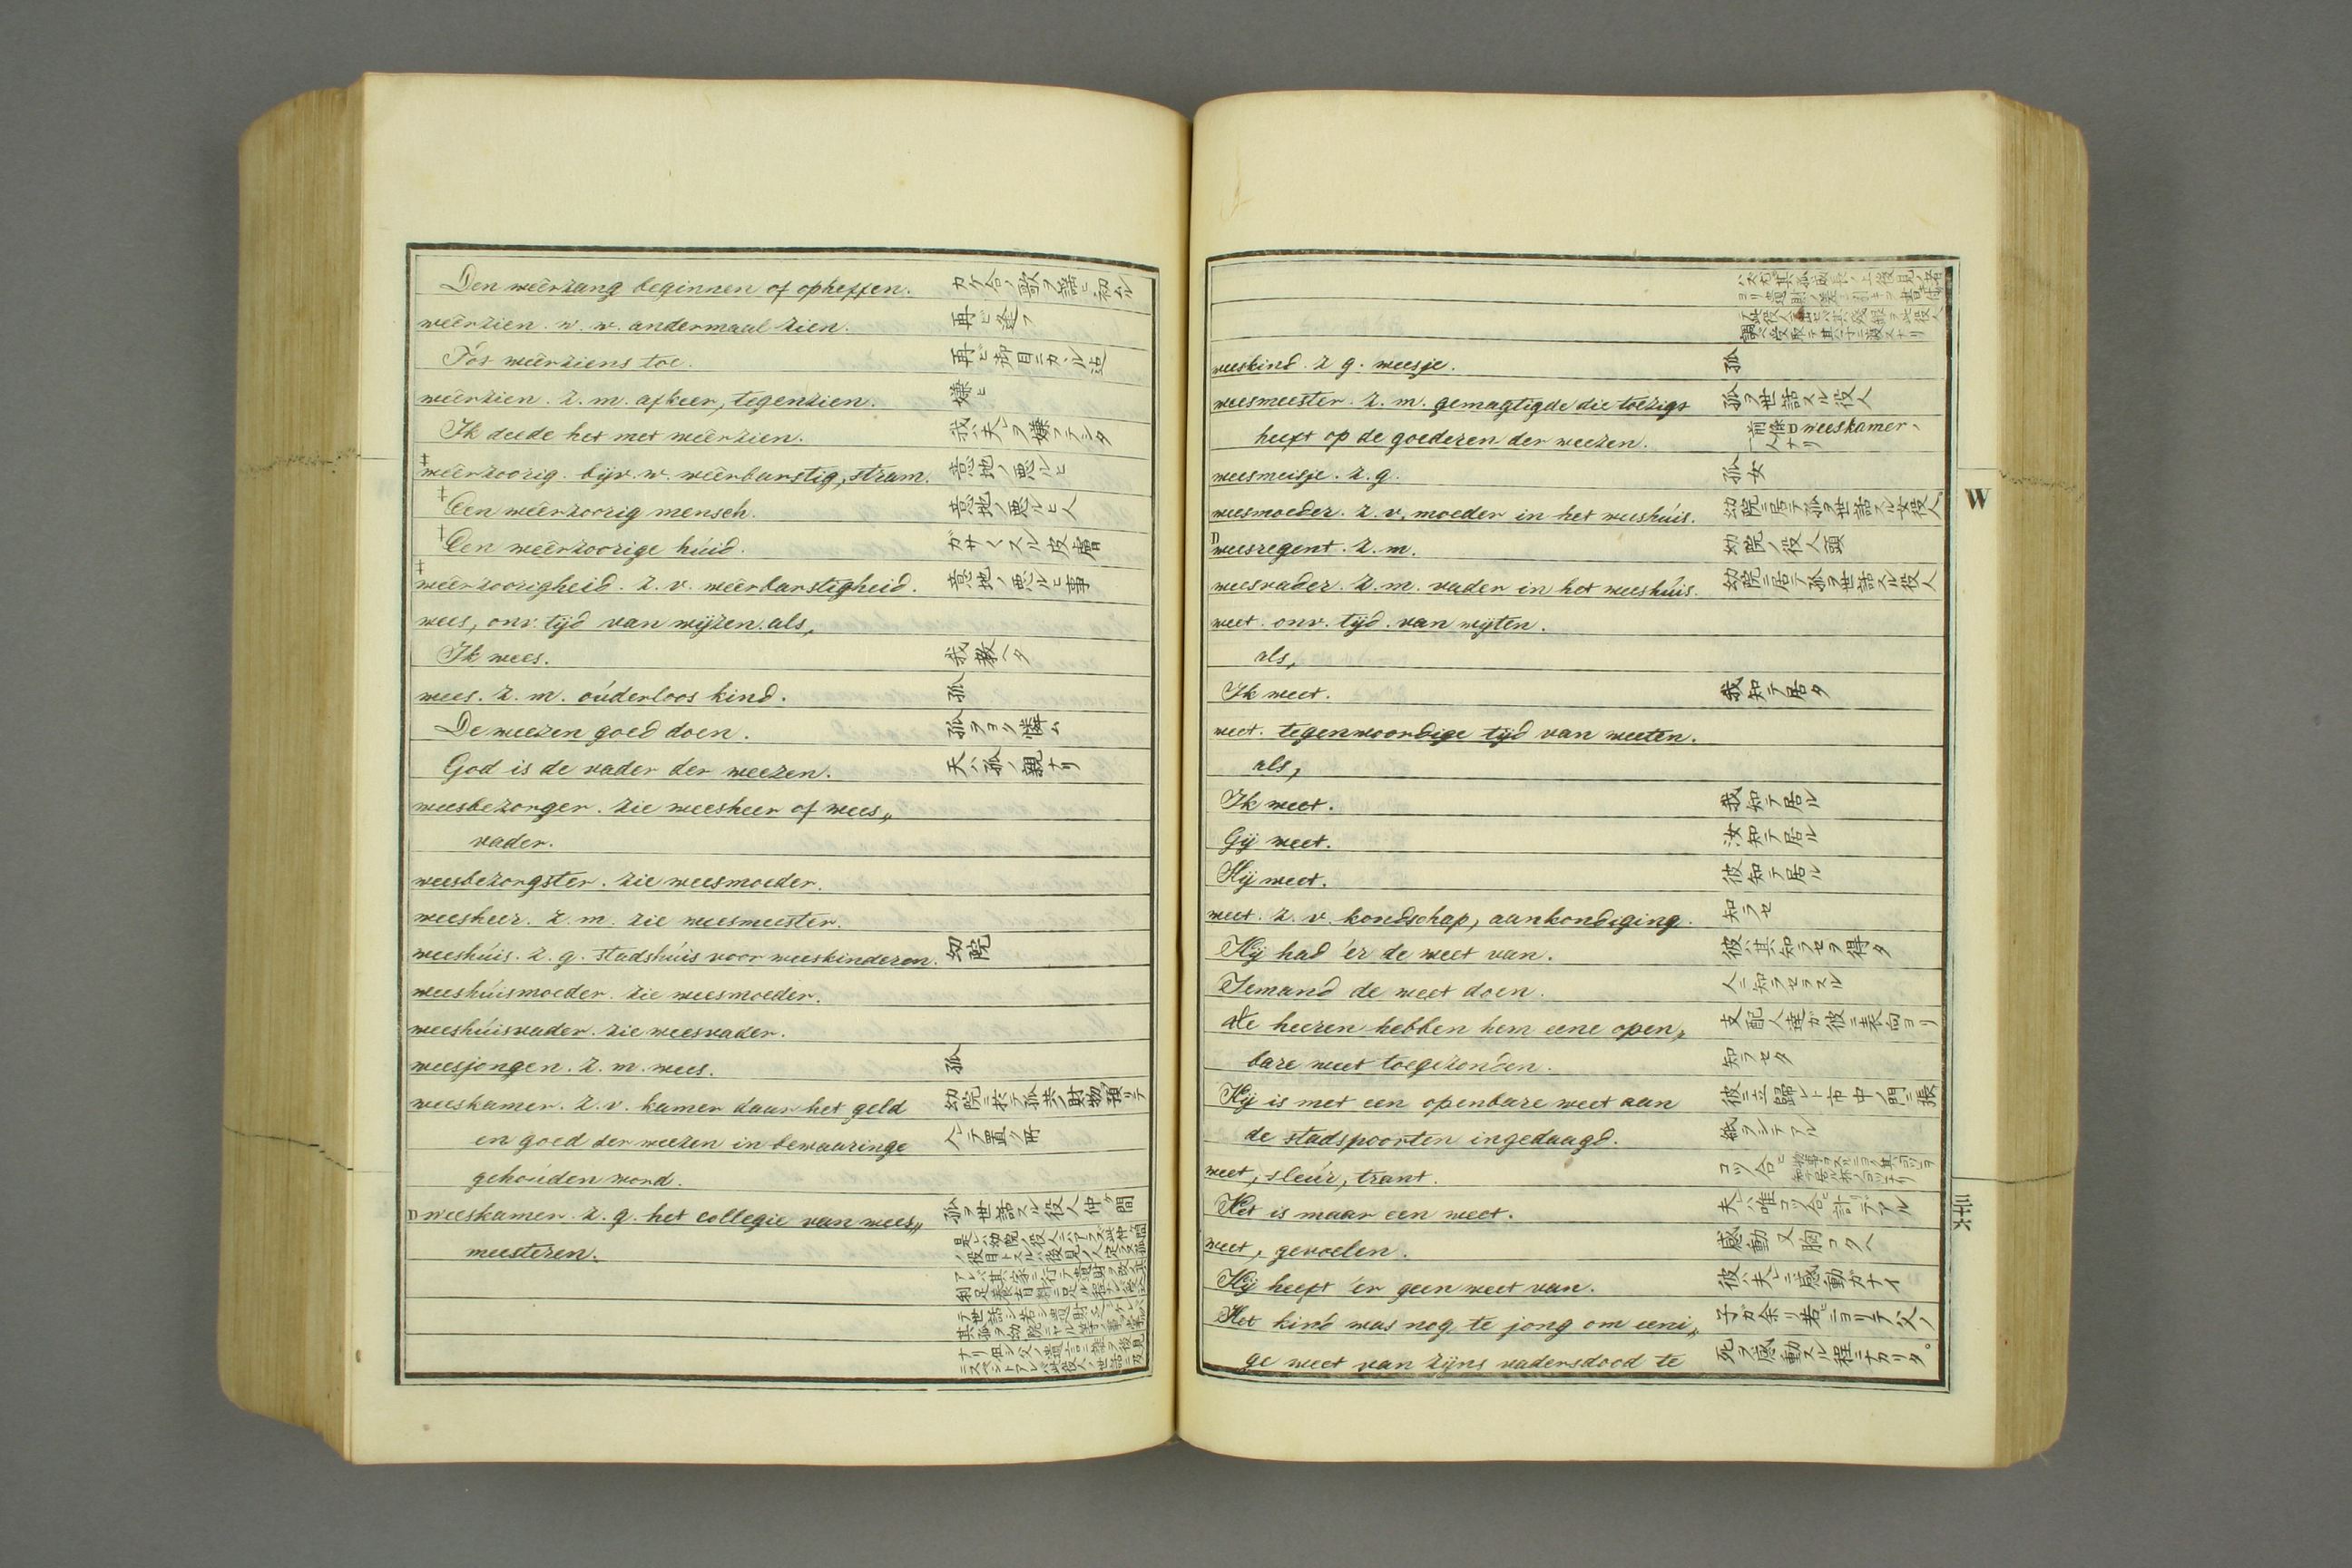 Den weêrzang beginnen of opheffen. カケ合ノ歌ヲ謡ヒ初ムル
weêrzien. w. w. andermaal zien. 再ビ逢フ
Tós weêrziens toe. 再ビ御目ニカヽル迠
weêrzien. z. m. afkeer, tegenzien. 嫌ヒ
Ik deede het met weêrzien. 我ハ夫レヲ嫌フテシタ
‡weêrzoorig. bijv. w. weêrbarstig, stram. 意地ノ悪ルヒ
‡Een weêrzoorig mensch. 意地ノ悪ルヒ人
†Een weêrzoorige húid. ガサ〱スル皮膚
‡weêrzoorigheid. z. v. weêrbarstigheid. 意地ノ悪ルヒ事
wees, onv. tijd van wijzen. als,
Ik wees. 我教ヘタ
wees. z. m. oúderloos kind. 孤
De weezen goed doen. 孤ヲヨク憐ム
God is de vader der weezen. 天ハ孤ノ親ナリ
weesbezorger. zie weesheer of wees„
vader.
weesbezorgster. zie weesmoeder.
weesheer. z. m. zie weesmeester.
weeshúis. z. g. stadshúis voor weeskinderen. 幼院
weeshúismoeder. zie weesmoeder.
weeshúisvader. zie weesvader.
weesjongen. z. m. wees. 孤
weeskamer. z. v. kamer daar het geld 幼院ニ於テ孤共ノ財物ヲ預リテ
en goed der weezen in bewaaringe 入テ置ク所
gehoúden word.
D weeskamer. z. g. het collegie van wees„ 孤ヲ世話スル役人仲ケ間
meesteren.
weeskind. z g. weesje. 孤
weesmeester. z. m. gemagtigde die toezigt 孤ヲ世話スル役人
heeft op de goederen der weezen. 前條D weeskamer、一人ナリ
weesmeisje. z. g. 孤女
weesmoeder. z. v. moeder in het weeshúis. 幼院ニ居テ孤ヲ世話スル女役人
D weesregent. z. m. 幼院ノ役人頭
weesvader. z. m. vader in het weeshúis. 幼院ニ居テ孤ヲ世話スル役人
weet. onv. tijd. van wijten.
als,
Ik weet. 我知テ居タ
weet. tegenwoordige tijd van weeten.
als,
Ik weet. 我知テ居ル
Gij weet. 汝知テ居ル
Hij weet. 彼知テ居ル
weet. z. v. kondschap, aankondiging. 知ラセ
Hij had 'er de weet van. 彼ハ其知ラセヲ得タ
Iemand de weet doen. 人ニ知ラセヲスル
de heeren hebben hem eene open„ 支配人達ガ彼ニ表向ヨリ
bare weet toegezonden. 知ラセタ
Hij is met een openbare weet aan 彼ニ立歸レト市中ノ門ニ張
de stadspoorten ingedaagd. 紙ヲシテアル
weet, sleúr, trant. コツ合
Het is maar een weet. 夫レハ唯コツ合ヒ計リデアル
weet, gevoelen. 感動 又 胸コタヘ
Hij heeft 'er geen weet van. 彼ハ夫レニ感動ガナイ
Het kind was nog te jong om eeni„ 子ガ余リ若ヒニヨリテ父ノ
ge weet van zijns vadersdood te 死ヲ感動スル程ニナカリタ。
W